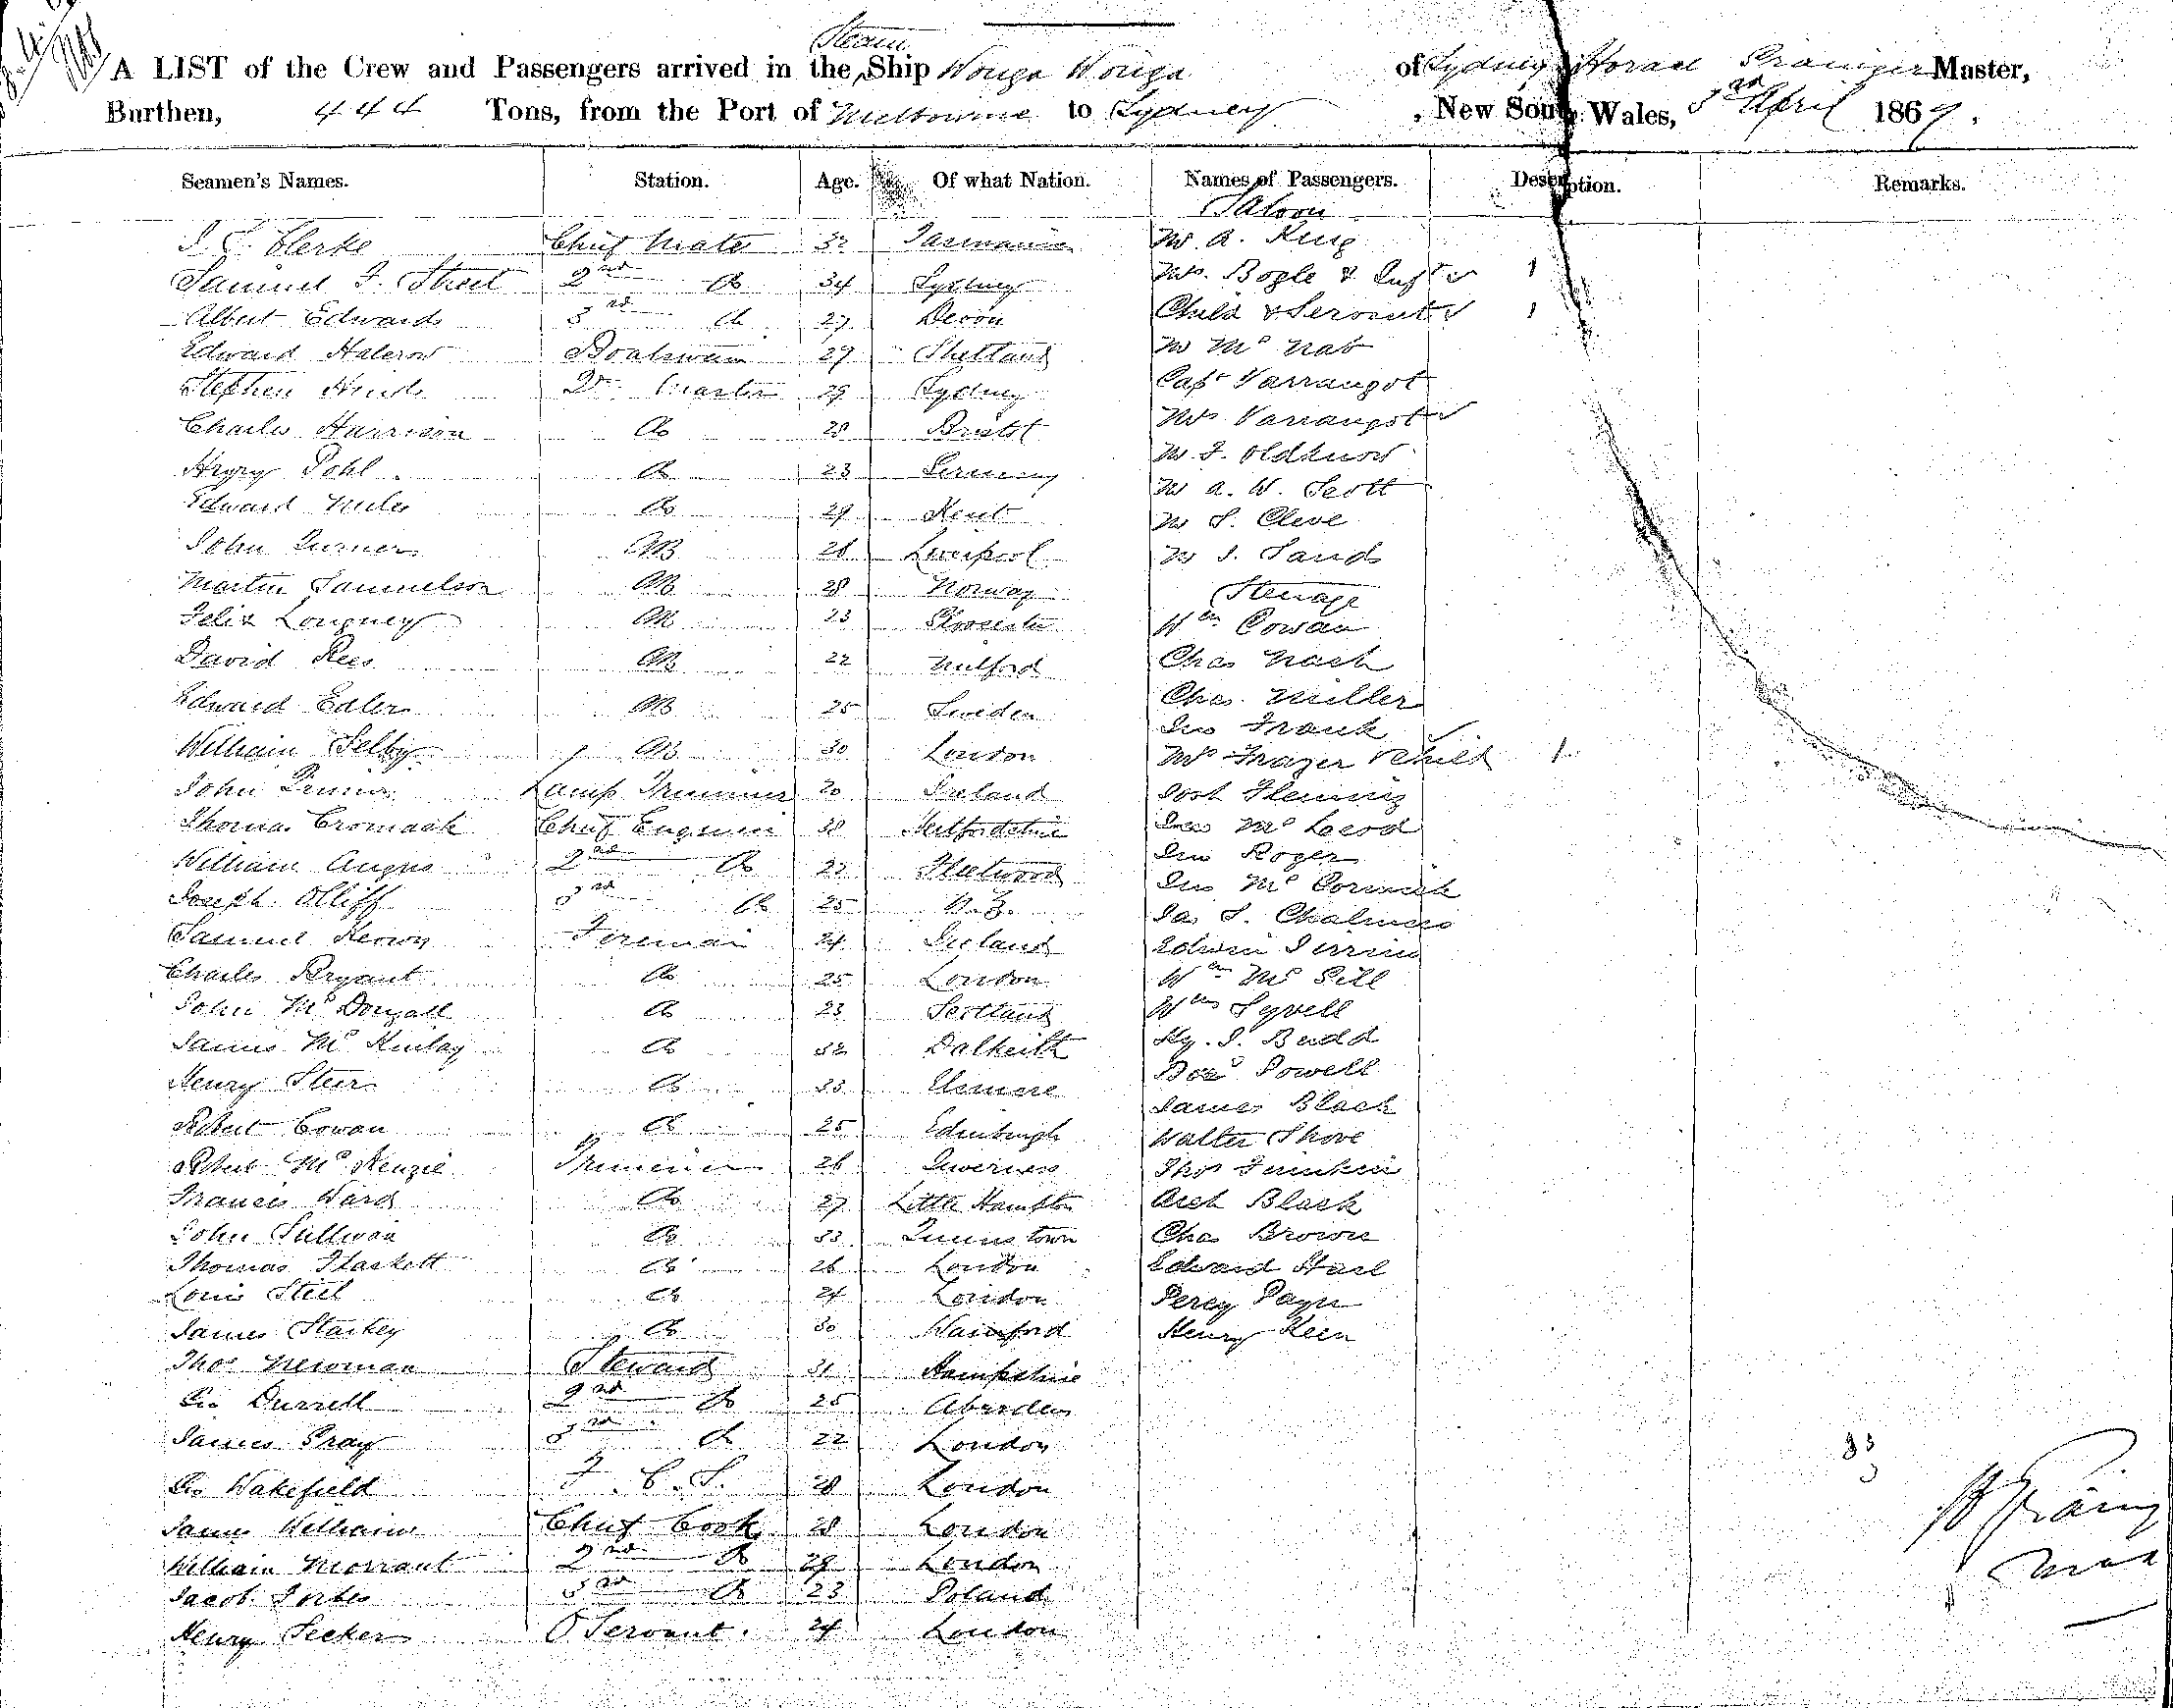 Steam
A LIST of the Crew and Passengers arrived in the Ship Wonga Wonga of Sydney Master,
Burthen, 444 Tons, from the Port of Melbourne to Sydney, New South Wales, 3rd April 1869.
Seamen's Names. Station. Age. Of what Nation. Names of Passengers. Description. Remarks.
Saloon
Clerke Chief Mate 32 Tasmania Mr A. King
Samuel Street 2nd Do 34 Sydney Mrs Bogle & 1
Albert Edwards 3rd Do 27 Devon Child & Servant 1
Edward Halcrow Boatswain 29 Shetland Mr McNab
Stephen Qr Master 29 Sydney Capt Varrangot
Charles Harrison Do 28 Bristol Mrs Varrangot
Henry Pohl Do 23 Germany Mr Oldknow
Edward Miles Do 29 Kent Mr A. W. Scott
John Turner AB 26 Liverpool Mr S. Cleve
Martin Samuelson AB 28 Norway Mr J. Sands
Steerage
Felix AB 23 Wm Cowan
David Rees AB 22 Milford Chas Nash
Edward Edlers AB 25 Sweden Chas. Miller
Jno Frank
William Selby AB 30 London Mrs Frazer & Child 1
John Lamp Trimmer 20 Ireland Fleming
Thomas Cromack Chief Engineer 38 Jno McLeod
William Angus 2nd Do Fleetwood Jno Roger
Joseph Olliff 3rd Do 25 Jno McCormick
Samuel Fireman 24 Ireland Jas S. Chalmers
Edwin Perrin
Charles Bryant Do 25 London Wm
John McDougall Do 23 Scotland Wm
James McKinlay Do 32 Dalkeith Hy. J. Budd
Henry Steer Do 33 Powell
James Black
Robert Cowan Do 25 Edinburgh Walter Shove
Robert McKenzie Trimmer 26 Inverness Thos
Francis Ward Do 27 Little Hampton Arch Black
John Sullivan Do 33 Queenstown Chas Brown
Thomas Plaskett Do 26 London Edward Hall
Louis Steel Do 24 London Percy Payne
James Starkey Do 30 Henry Keen
Thos Newman Steward 31 Hampshire
Geo Durrell 2nd Do 25 Aberdeen
James Gray 3rd Do 22 London
Geo Wakefield F. C. S. 28 London
James Williams Chief Cook 28 London
William Morrant 2nd Do 29 London
Jacob 3rd Do 23 Poland
Henry Secker Servant 24 London